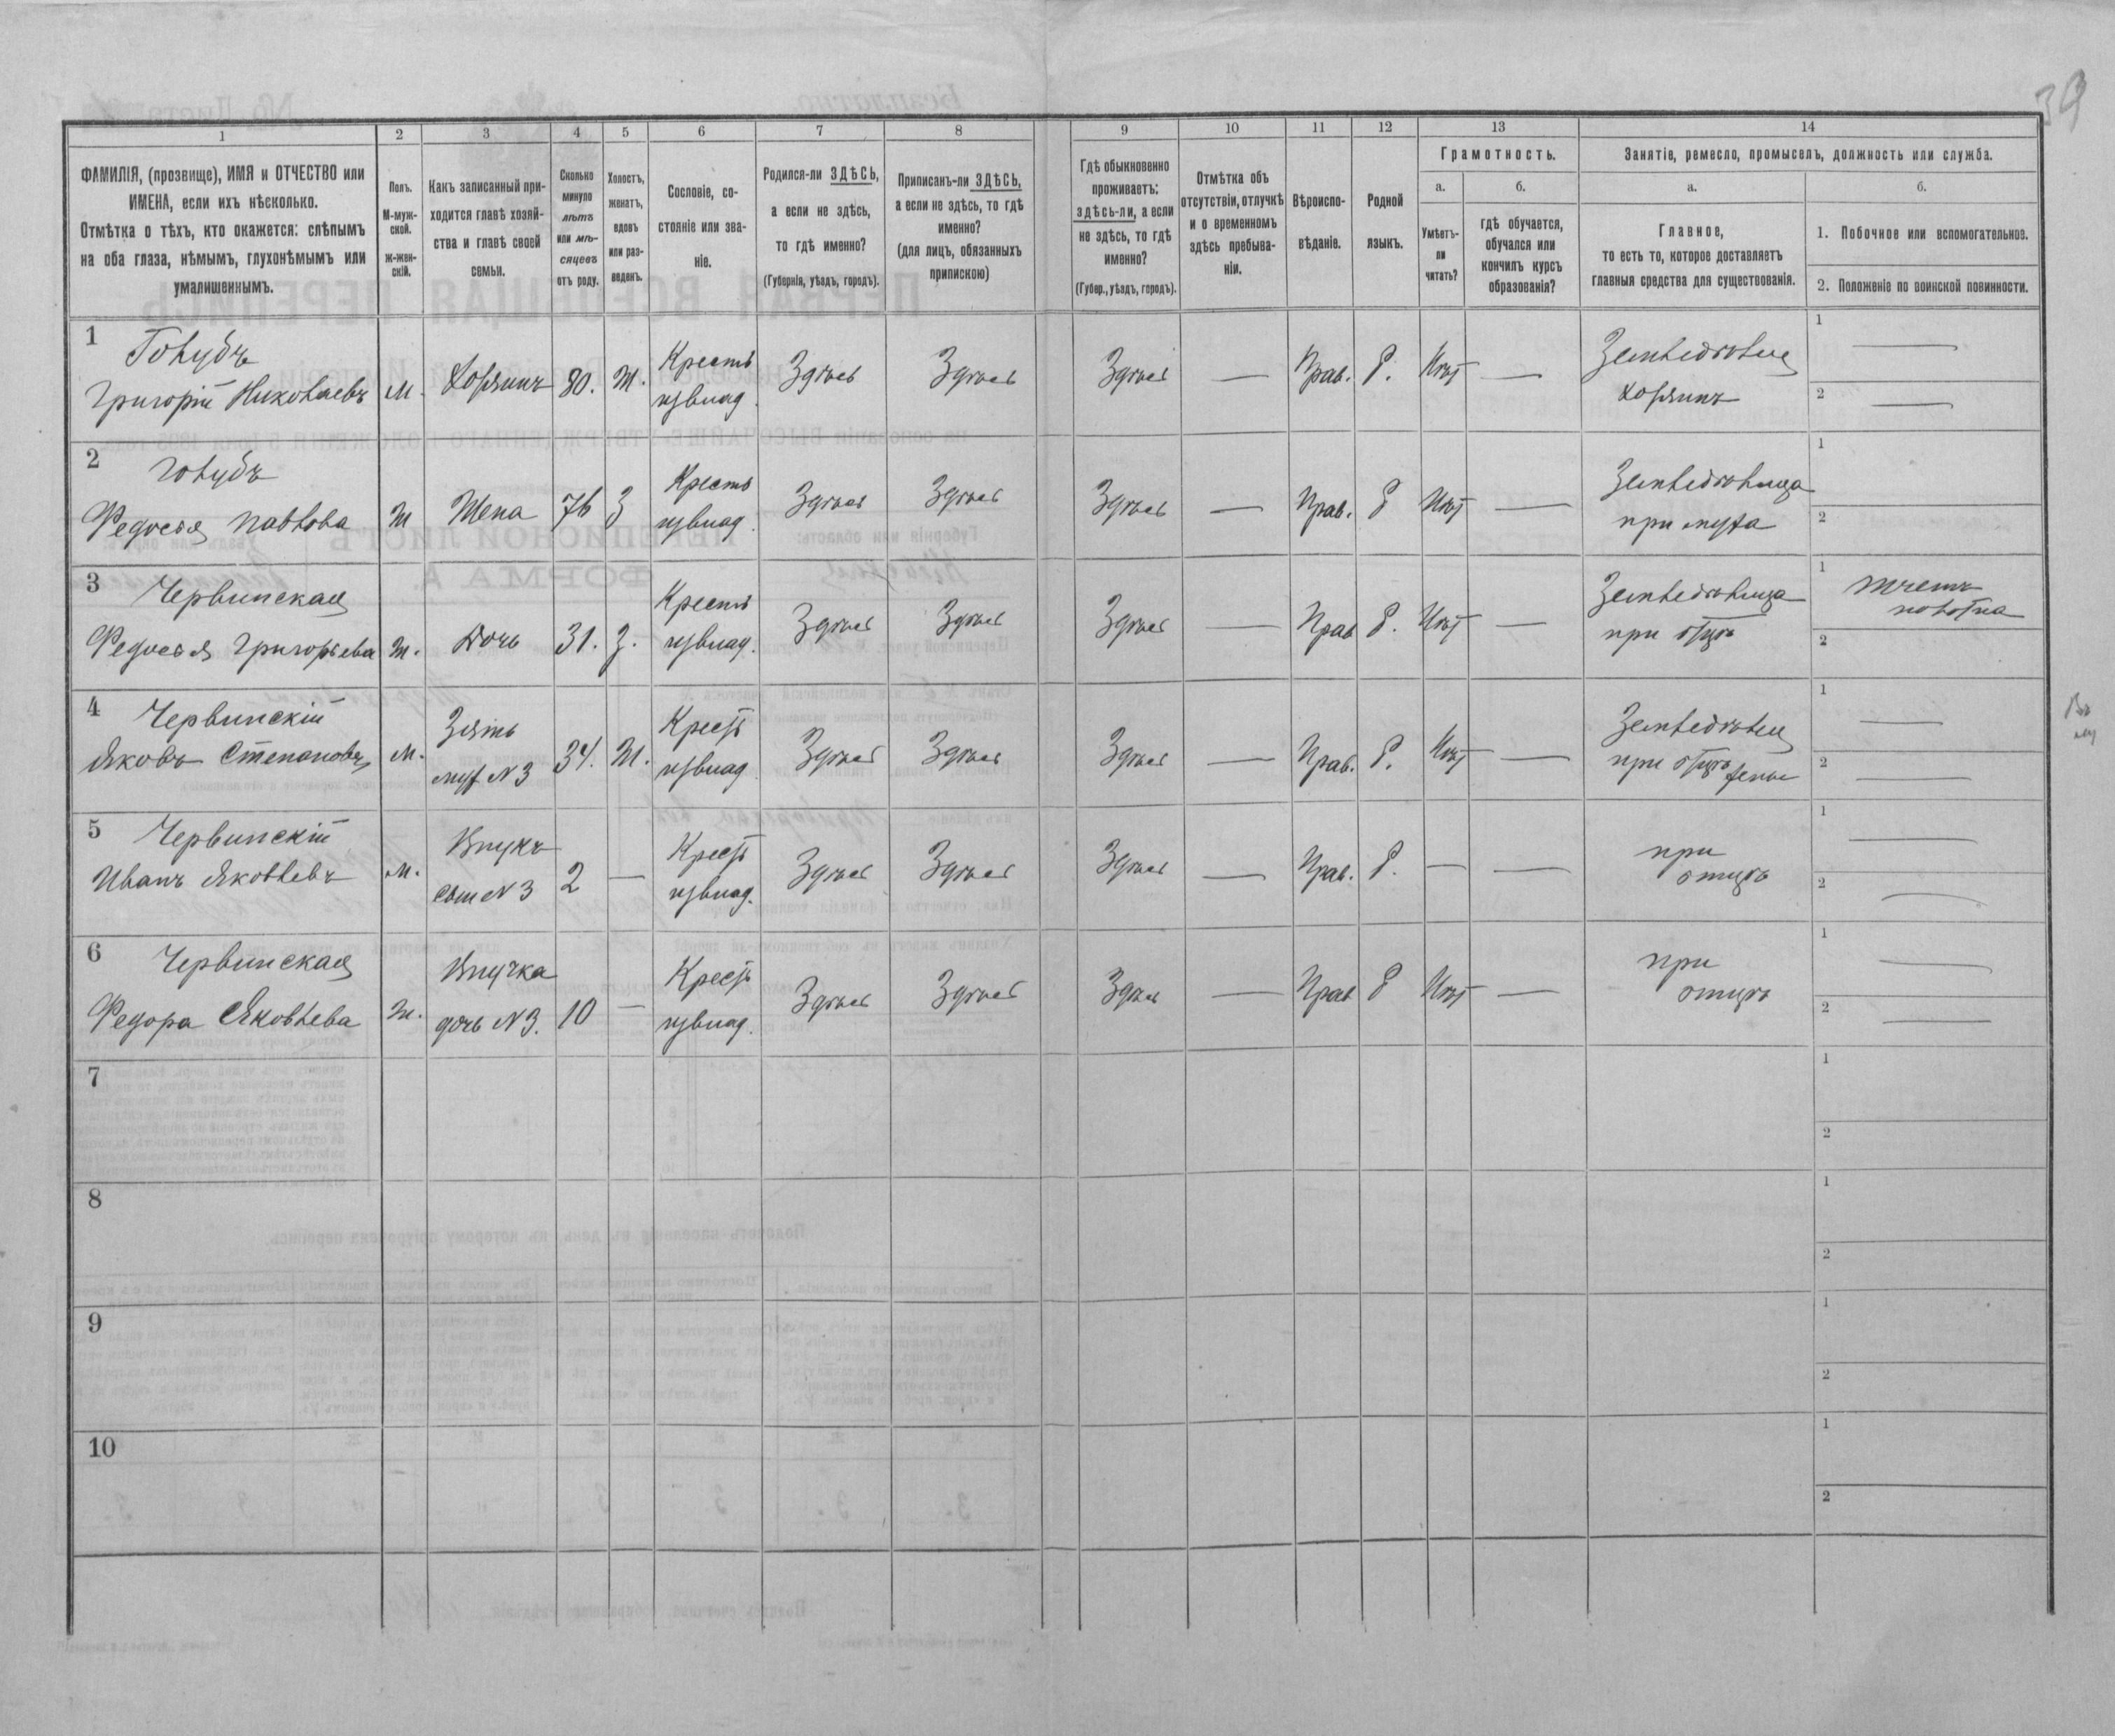 39
1 2 3 4 5 6 7 8 9 10 11 12 13 14
ФАМИЛІЯ, (прозвище), ИМЯ и ОТЧЕСТВО или
ИМЕНА, если ихъ нѣсколько.
Отмѣтка о тѣхъ, кто окажется: слѣпымъ
на оба глаза, нѣмымъ, глухонѣмымъ или
умалишеннымъ.
Полъ.
М-муж-
ской.
ж-жен-
скій.
Какъ записанный при-
ходится главѣ хозяй-
ства и главѣ своей
семьи.
Сколько
минуло
лѣтъ
или мѣ-
сяцевъ
отъ роду.
Холостъ,
женатъ,
вдовъ
или раз-
веденъ.
Сословіе, со-
стояніе или зва-
ніе.
Родился-ли ЗДѢСЬ,
а если не здѣсь,
то гдѣ именно?
(Губернія, уѣздъ, городъ).
Приписанъ-ли ЗДѢСЬ,
а если не здѣсь, то гдѣ
именно?
(для лицъ, обязанныхъ
припискою)
Гдѣ обыкновенно
проживаетъ:
здѣсь-ли, а если
не здѣсь, то гдѣ
именно?
(Губер., уѣздъ, городъ).
Отмѣтка объ
отсутствіи, отлучкѣ
и о временномъ
здѣсь пребыва-
ніи.
Вѣроиспо-
вѣданіе.
Родной
языкъ.
Грамотность.
а.
Умѣетъ-
ли
читать?
б.
гдѣ обучается,
обучался или
кончилъ курсъ
образованія?
Занятіе, ремесло, промыселъ, должность или служба.
а.
Главное,
то есть то, которое доставляетъ
главныя средства для существованія.
б.
1. Побочное или вспомогательное.
2. Положеніе по воинской повинности.
1 Голубъ
Григорій Николаевъ М. Хозяинъ 80. Ж. Крестъ Здѣсь Здѣсь Здѣсь — Прав. Р. Нѣт — Земледѣлец 1 —
извлад. хозяинъ 2 —
2 Голубъ
Федосья Павлова Ж Жена 76 З Крестъ Здѣсь Здѣсь Здѣсь — Прав. Р Нѣт — Земледѣлица 1
извлад. при мужа 2
3 Червинская
Федосья Григорьева Ж. Дочь 31. З. Крестъ Здѣсь Здѣсь Здѣсь — Прав Р. Нѣт — Земледѣлица 1 Ткетъ
извлад. при отцѣ полотна
2
4 Червинскій
Яковъ Степановъ М. Зять 34. Ж. Крест Здѣсь Здѣсь Здѣсь — Прав. Р. Нѣт — Земледѣлец 1 —
муж N 3 извлад при отцѣ жены 2 —
5 Червинскій
Иванъ Яковлевъ М. Внукъ 2 — Крест Здѣсь Здѣсь Здѣсь — Прав. Р. — — при 1 —
сын N 3 извлад. отцѣ 2 —
6 Червинская
Федора Яковлева Ж. Внучка 10 — Крест Здѣсь Здѣсь Здѣсь — Прав Р Нѣт — при 1 —
дочь N 3. извлад. отцѣ 2 —
7 1
2
8 1
2
9 1
2
10 1
2